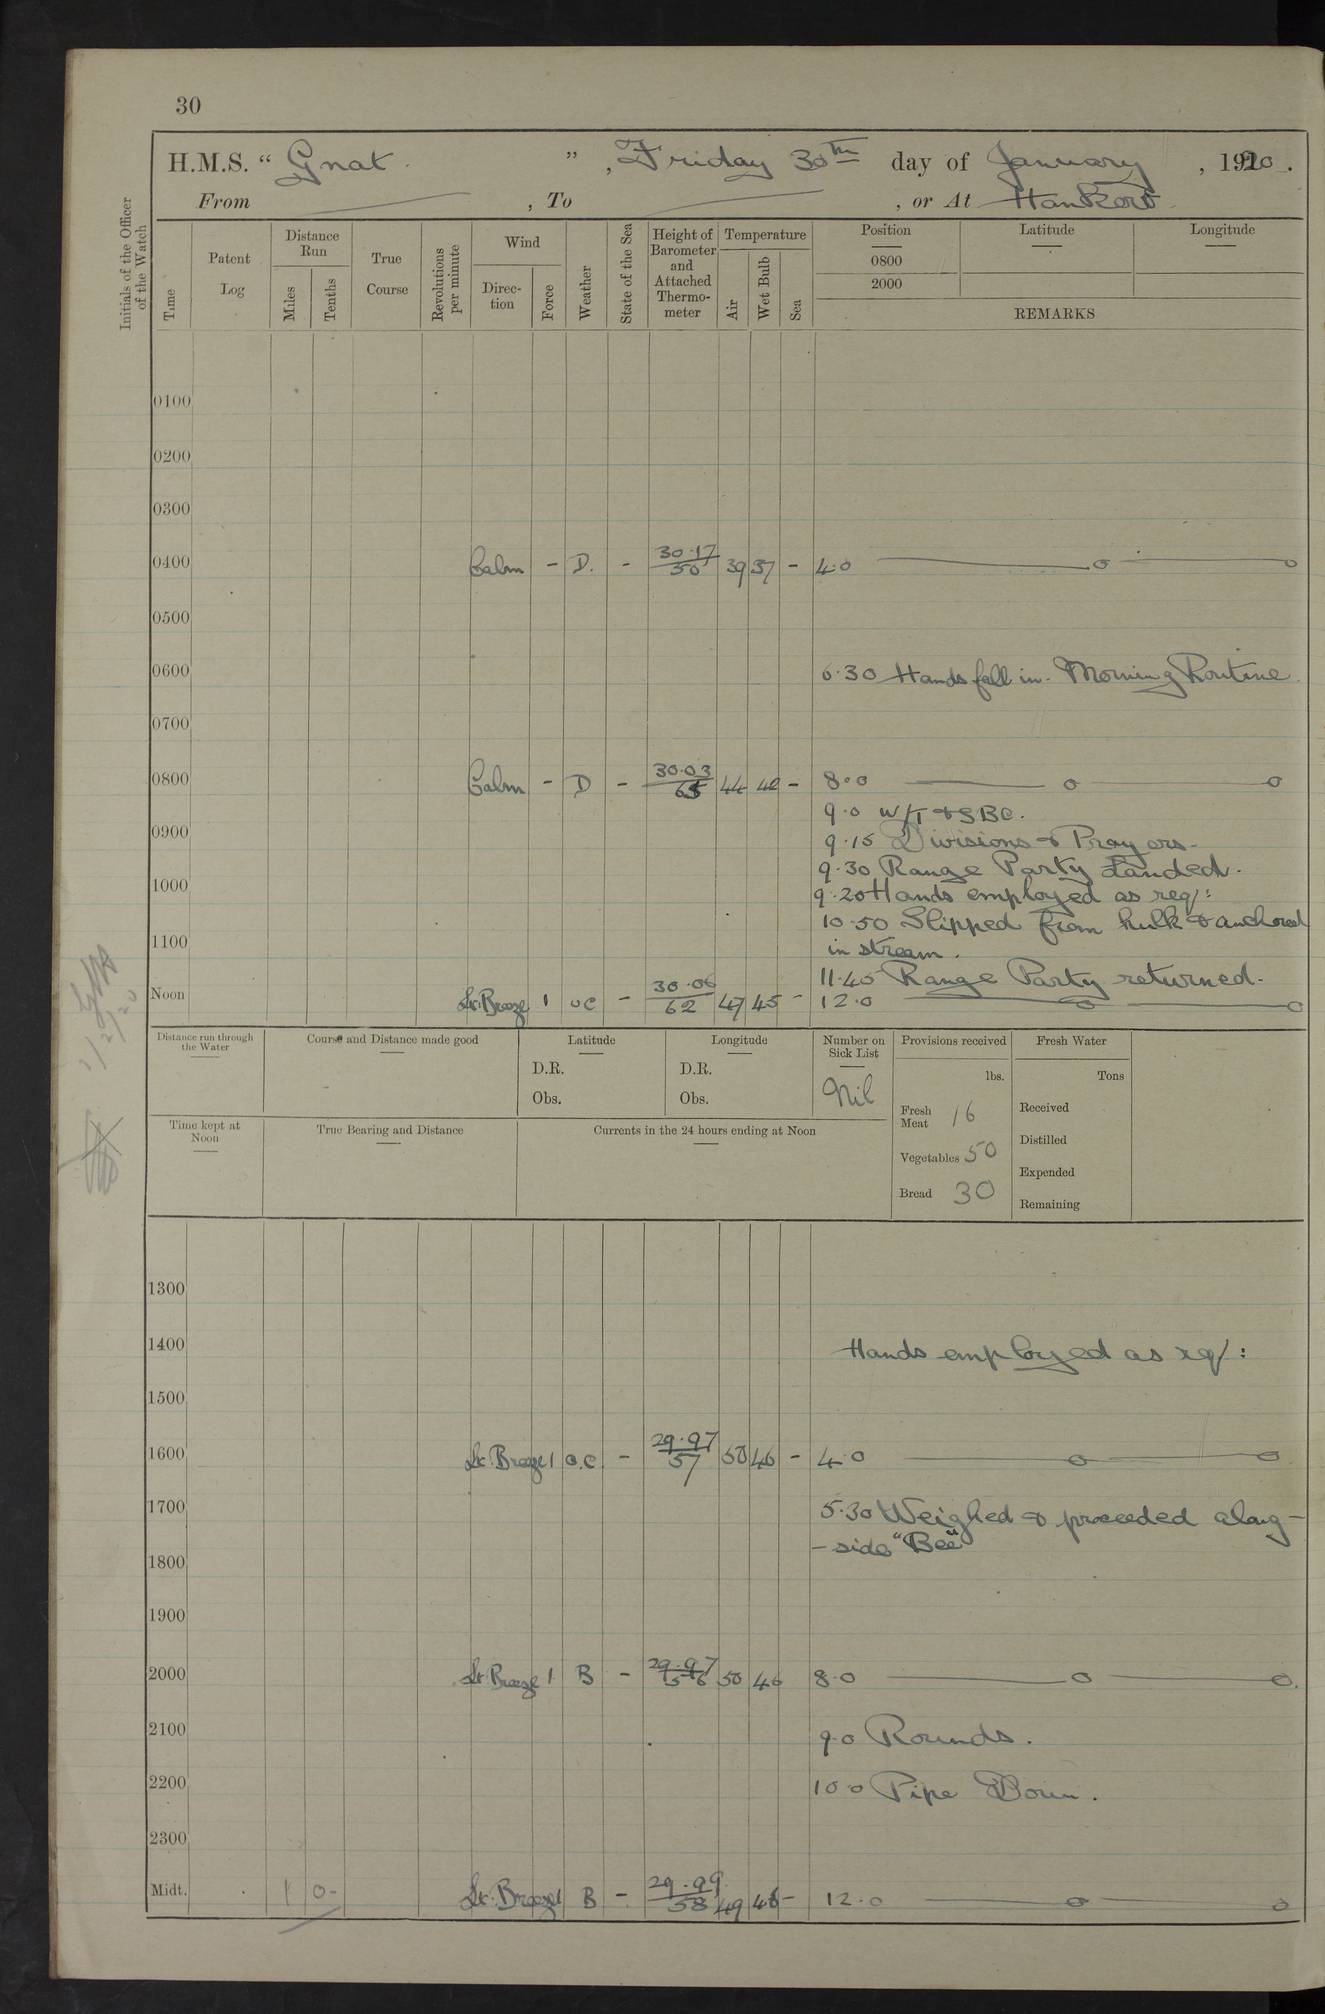 30
H.M.S. “ Gnat. ” , Friday 30th day of January , 1920.
From , To , or At Hankow
Initials of the Officer of the Watch
Time
Patent Log
Distance Run
Miles
Tenths
True Course
Revolutions per minute
Wind
Direc-tion
Force
Weather
State of the Sea
Height of Barometer and Attached Thermo-meter
Temperature
Air
Wet Bulb
Sea
Position Latitude Longitude
0800
2000
REMARKS
0100
0200
0300
0400 Calm - D. - 30.17/50 39 37 - 4.0
0500
0600 6.30 Hands fall in. Morning Routine.
0700
0800 Calm - D - 30.03/65 44 42 - 8.0
9.0 W/T & SBC.
0900
9.15 Divisions & Prayers.
9.30 Range Party Landed.
1000 9.20 Hands employed as req/:
10.50 Slipped from hulk & anchored
1100 in stream.
11.40 Range Party returned.
Noon Lt. Breeze 1 oc - 30.06/62 47 45 - 12.0
Distance run through the Water
Course and Distance made good
Latitude
D.R.
Obs.
Longitude
D.R.
Obs.
Number on Sick List
Nil
Provisions received
lbs.
Fresh Meat 16
Vegetables 50
Bread 30
Fresh Water
Tons
Received
Distilled
Expended
Remaining
Time kept at Noon
True Bearing and Distance
Currents in the 24 hours ending at Noon
1300
1400 Hands employed as req/:
1500
1600 Lt. Breeze 1 o.c - 29.97/57 50 46 - 4.0
1700 5.30 Weighed & proceeded along-
-side "Bee"
1800
1900
2000 Lt. Breeze 1 B - 29.97/56 50 46 8.0
2100 9.0 Rounds.
2200 10.0 Pipe Down.
2300
Midt. 1 0- Lt. Breeze 1 B - 29.99/58 49 46 - 12.0